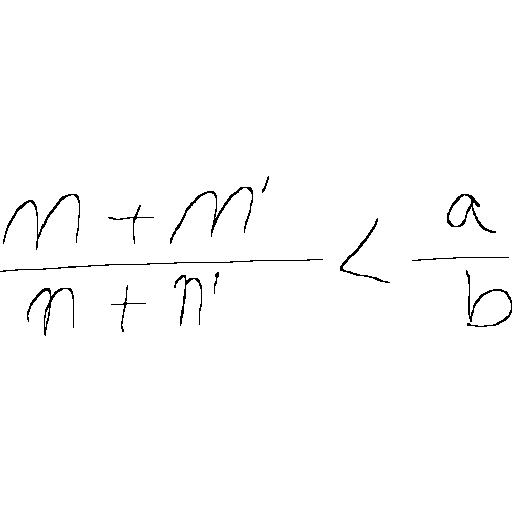 \frac{m+m'}{n+n'} < \frac{a}{b}